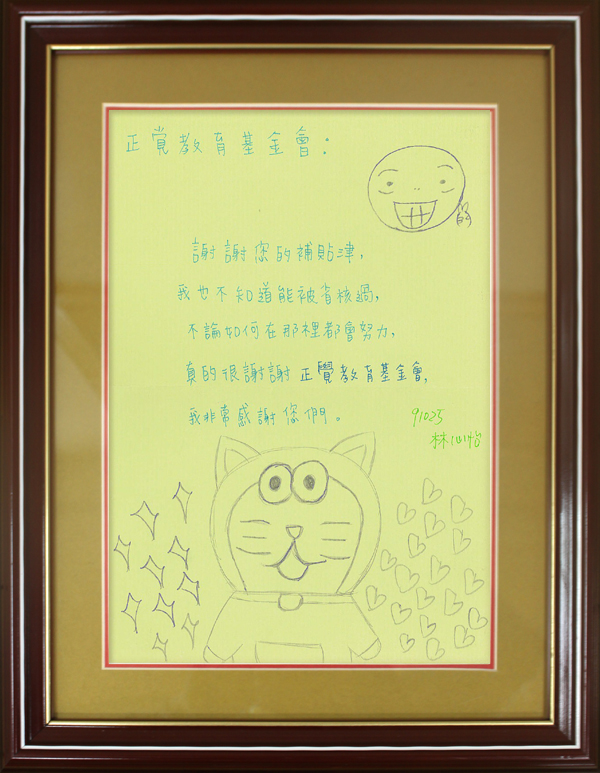 正覺教育基金會：
謝謝您的補貼津，
我也不知道能被省核過，
不論如何在那裡都會努力，
真的很謝謝 正覺教育基金會，
我非常感謝您們。
91025
林心怡